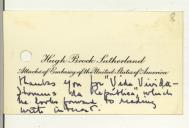 8
Hugh Brock Sutherland
Attaché of Embassy of the United States of America
thanks you for "Vida Vivida-
Homens da República", which
he looks forward to reading
with interest.